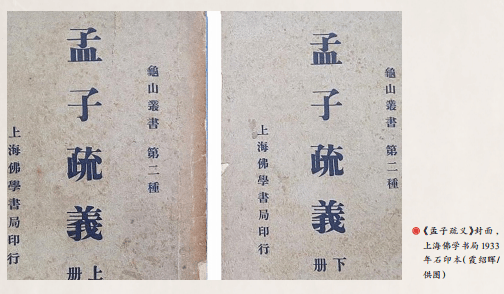 龜山叢書 第二種
孟子疏義
上册
上海佛學書局印行
龜山叢書 第二種
孟子疏義
下册
上海佛學書局印行
《孟子疏义》封面，
上海佛学书局1933
年石印本(霞绍晖/
供图)